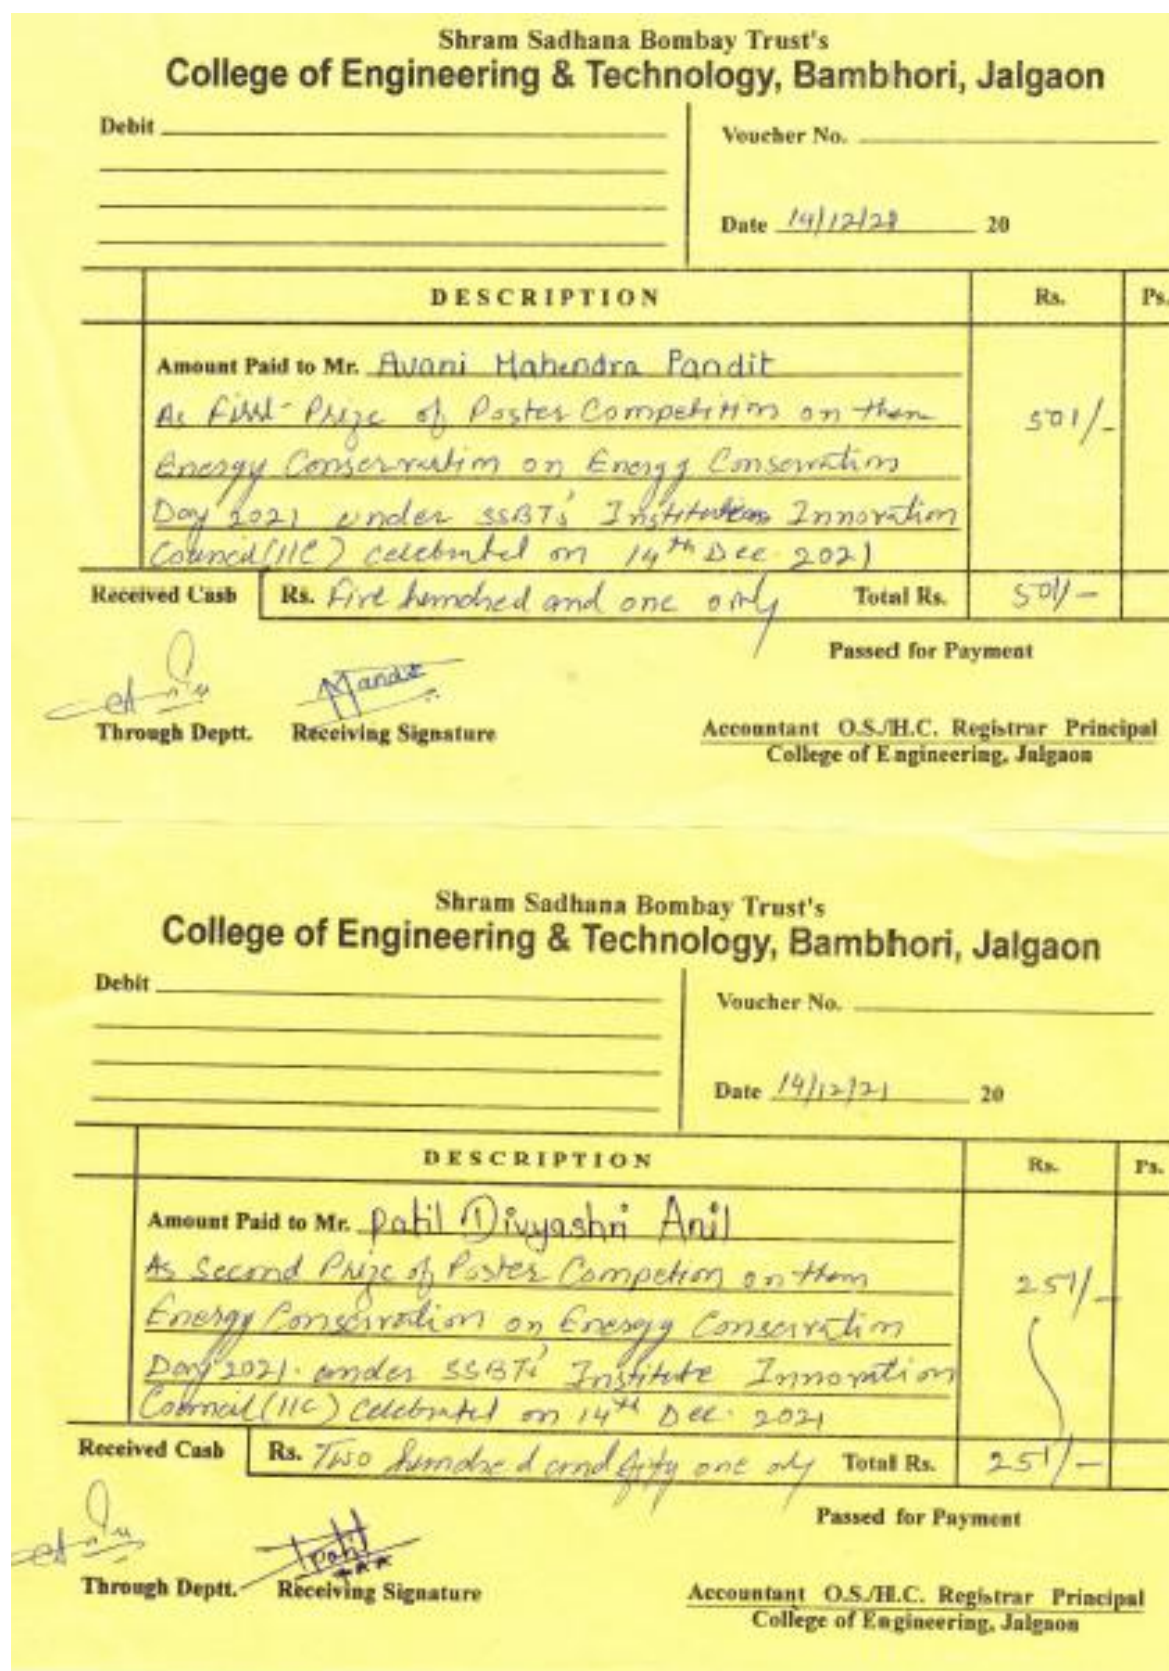 Shram Sadhana Bombay Trust's
College of Engineering & Technology, Bambhori, Jalgaon
Debit
Voucher No.
Date 14/12/21 20
DESCRIPTION Rs. Ps.
Amount Paid to Mr. Avani Mahendra Pandit
As First Prize of Poster Competition on them 501/-
Energy Conservation on Energy Conservation
Day 2021 under SSBT's Institution Innovation
Council (IIC) celebrated on 14th Dec. 2021
Received Cash Rs. Five hundred and one only Total Rs. 501/-
Passed for Payment
Through Deptt. Receiving Signature
Accountant O.S./H.C. Registrar Principal
College of Engineering, Jalgaon
Shram Sadhana Bombay Trust's
College of Engineering & Technology, Bambhori, Jalgaon
Debit
Voucher No.
Date 14/12/21 20
DESCRIPTION Rs. Ps.
Amount Paid to Mr. Patil Divyashri Anil
As Second Prize of Poster Competion on them 251/-
Energy Conservation on Energy Conservation
Day 2021. under SSBT's Institute Innovation
Council (IIC) Celebrated on 14th Dec. 2021
Received Cash Rs. Two hundred and fifty one only Total Rs. 251/-
Passed for Payment
Patil
Through Deptt. Receiving Signature
Accountant O.S./H.C. Registrar Principal
College of Engineering, Jalgaon